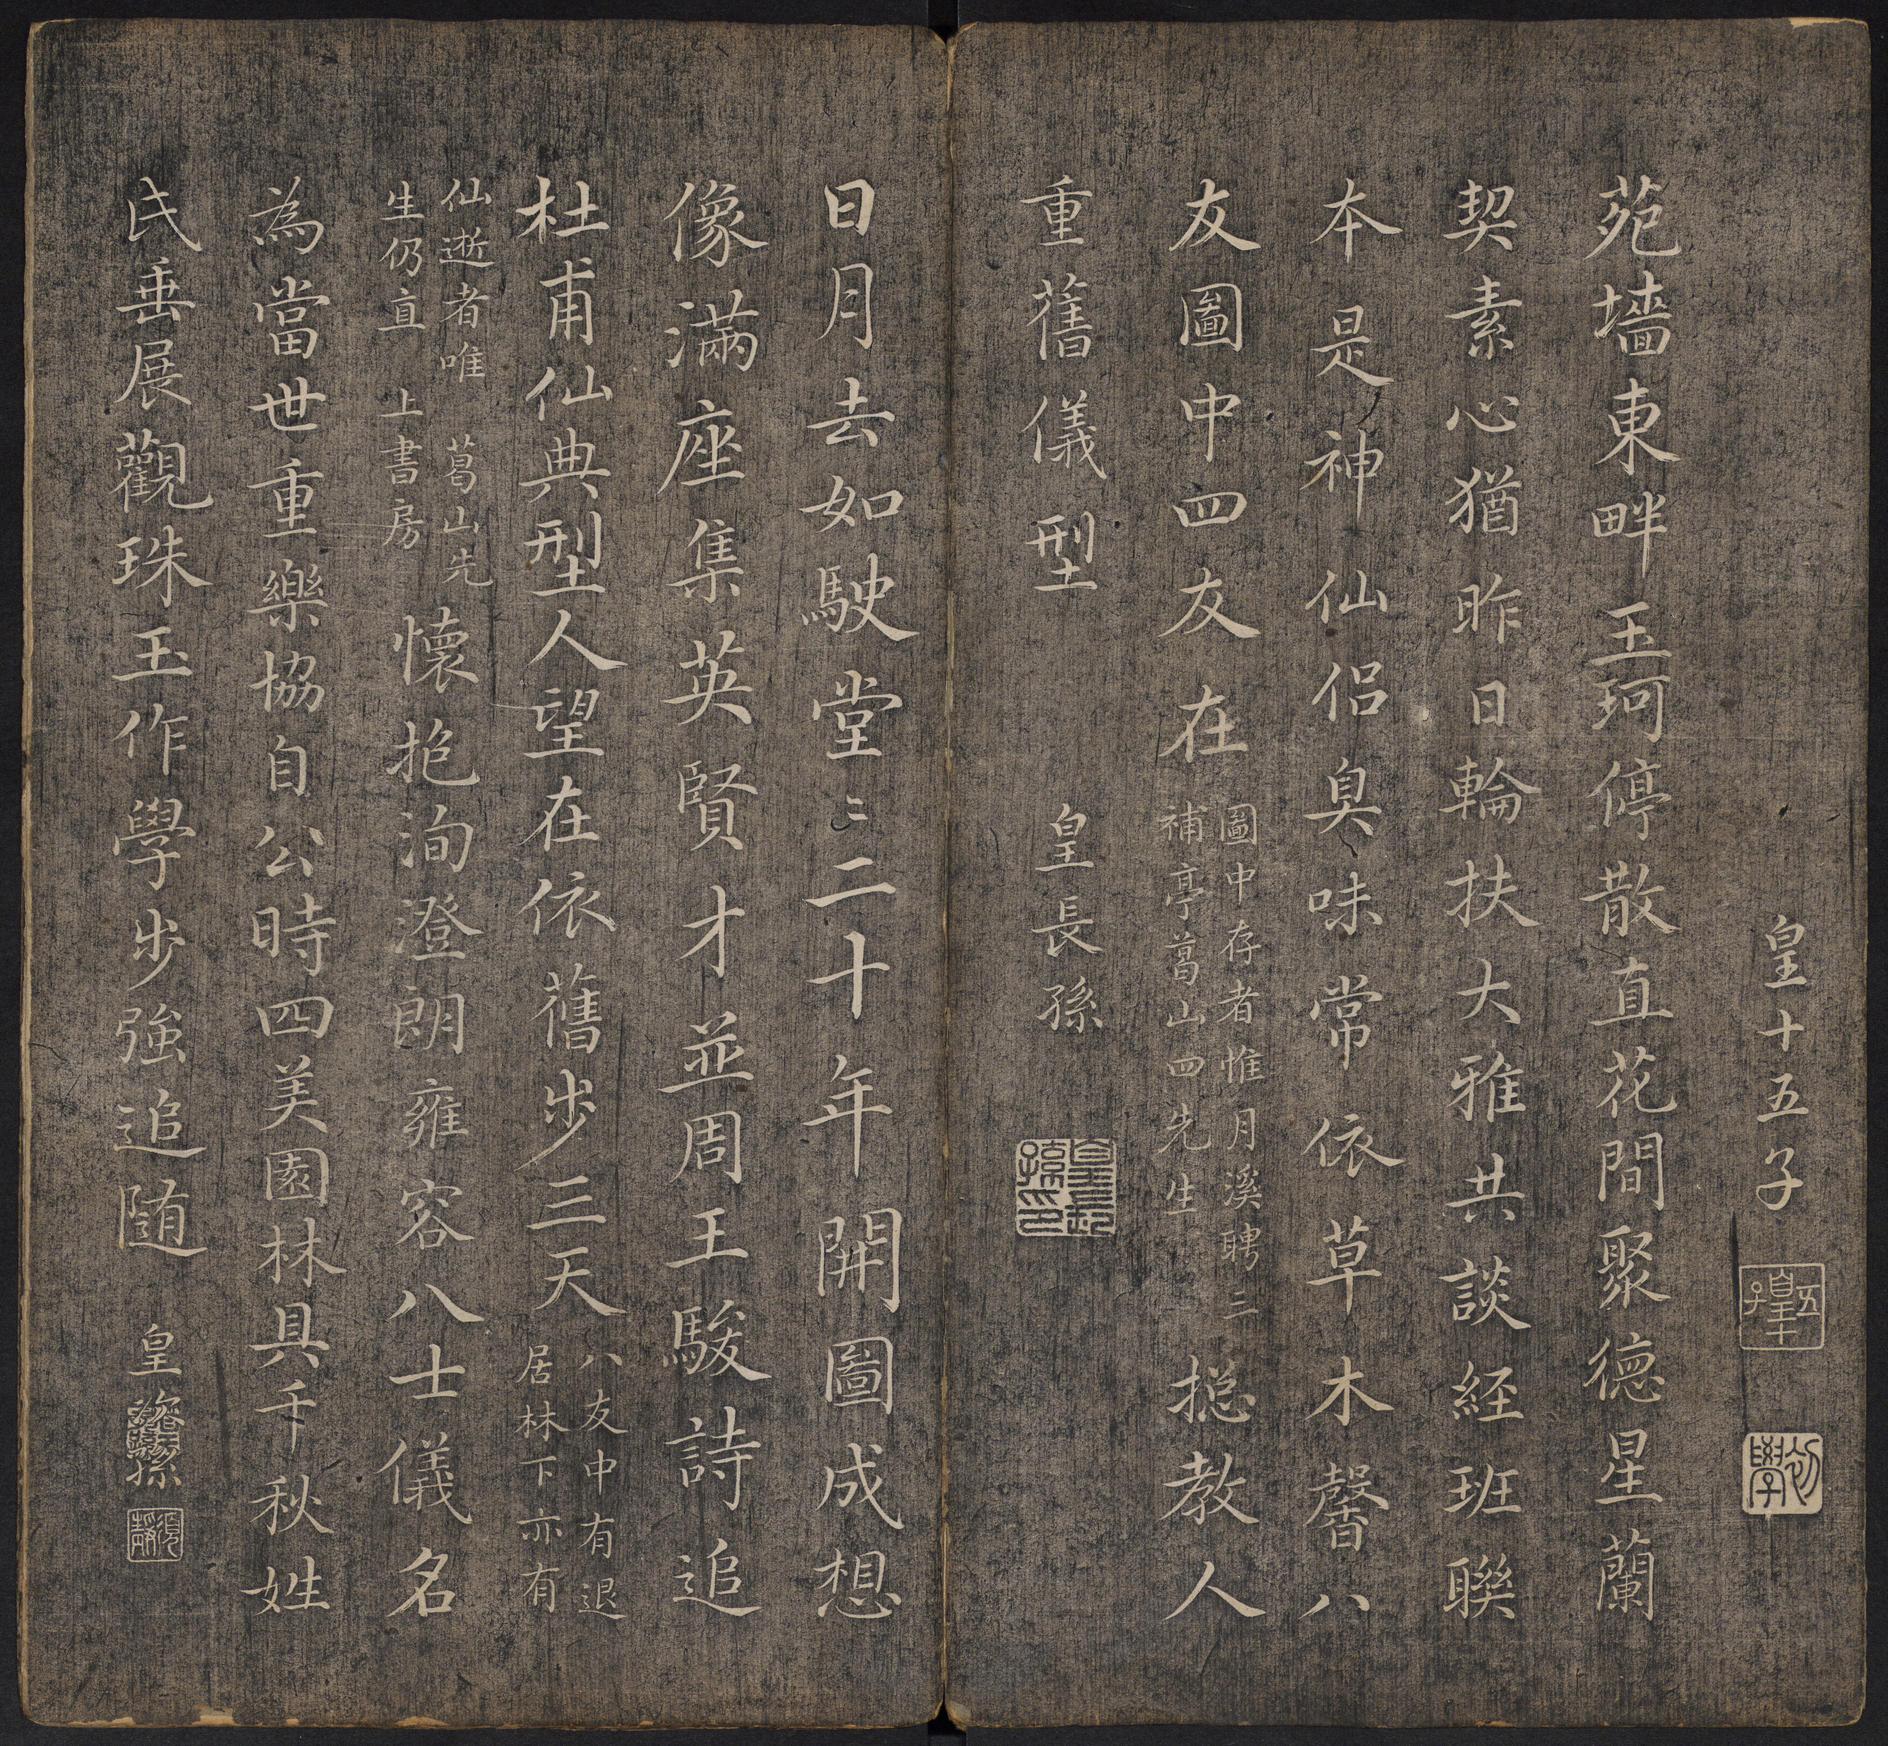 皇十五子
苑墻東畔玉珂停散直花間聚德星蘭
契素心猶昨日輪扶大雅共談経班聯
本是神仙侶臭味常依草木馨八
友圖中四友在圖中存者惟月溪聘三補亭葛山四先生摠教人
重舊儀型 皇長孫
皇長孫印
日月去如駛堂〻二十年開圖成想
像滿座集英賢才並周王駿詩追
杜甫仙典型人望在依舊步三天八友中有退居林下亦有
仙逝者唯葛山先生仍直上書房懷抱洵澄朗雍容八士儀名
為當世重樂協自公時四美園林具千秋姓
氏垂展觀珠玉作學步強追随 皇